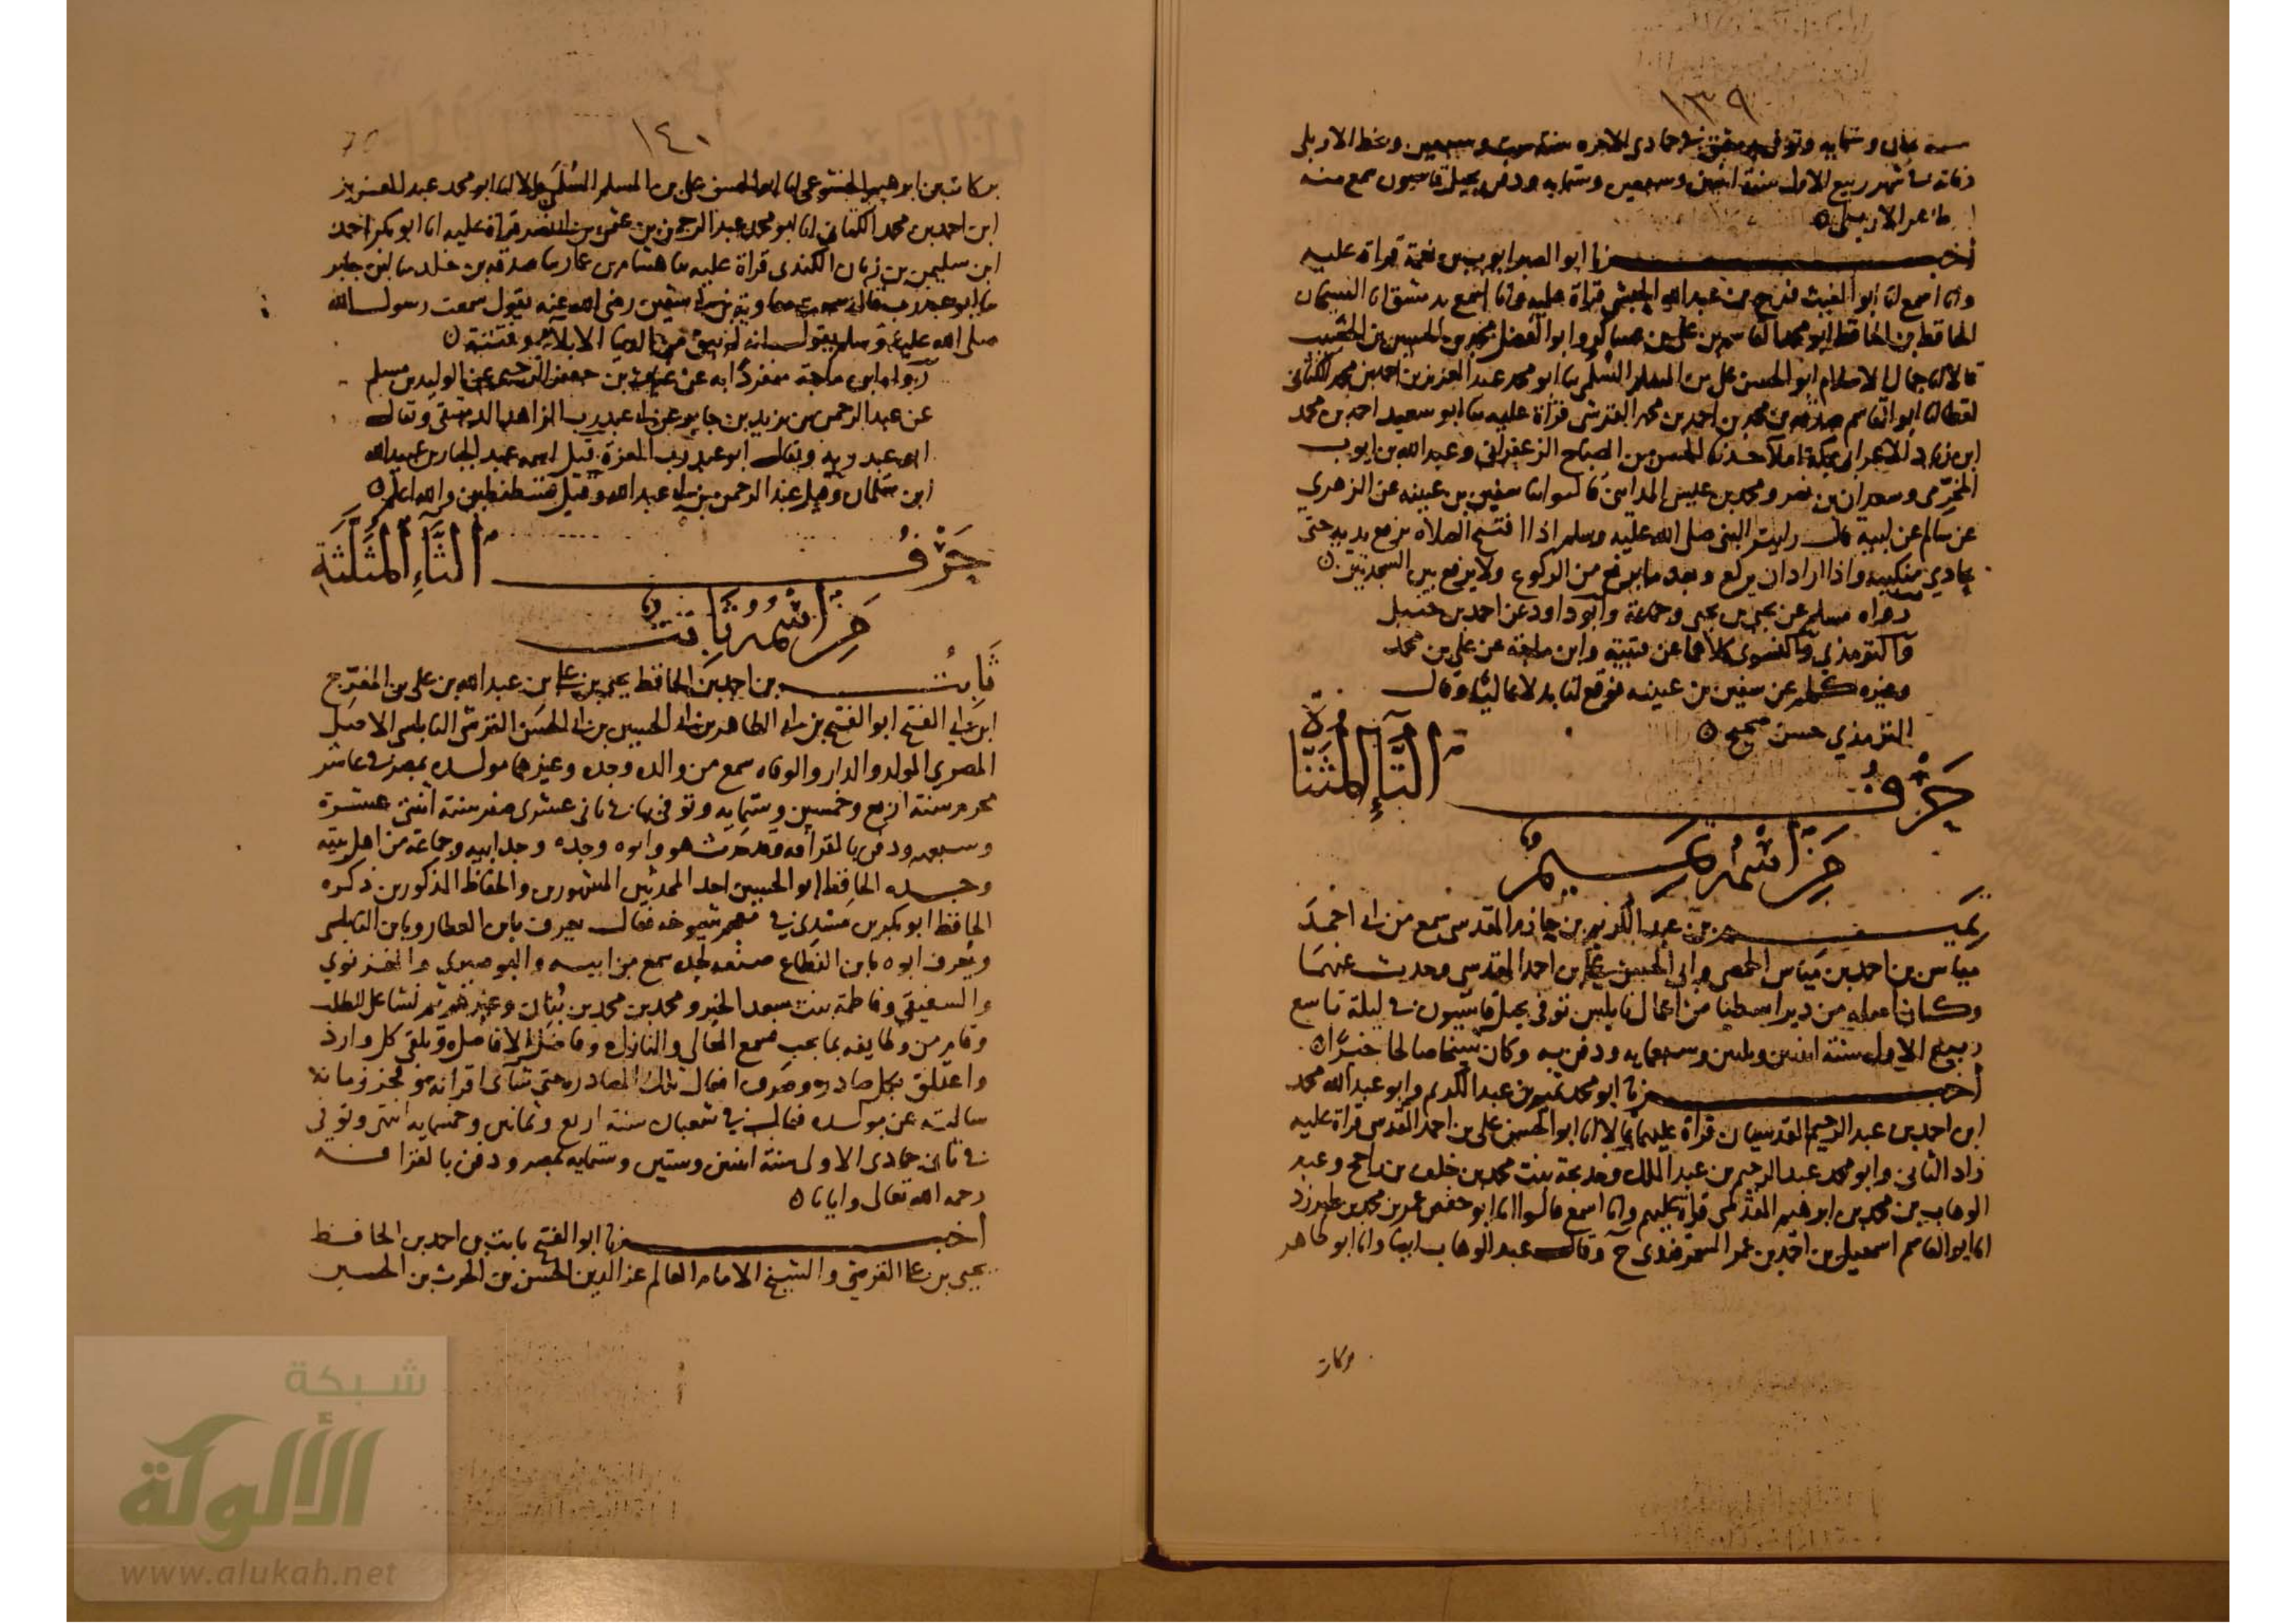 ١٣٩
سنة ثمان وستمايه وتوفى بدمشق في جمادى الاخره سنة ست وسبعين وبخط الاربلي
وفاته في شهر ربيع الاول سنة اثنين وسبعين وستمايه ودفن بجبل قاسيون سمع منه
الاربلي ٥
أخبـــرنا ابو الصبر ايوب بن نعمة قراة عليه
وانا اسمع انا ابو الغيث فرج بن عبد الله الحبشي قراة عليه وانا اسمع بدمشق انا الشيخان
الحافظ بن الحافظ ابو محمد القاسم بن علي بن عساكر وابو الفضل محمد بن الحسين بن الخصيب
قالا انا جمال الاسلام ابو الحسن علي بن المسلم السلمي نا ابو محمد عبد العزيز بن احمد بن محمد الكتاني
لفظا انا ابو القاسم صدقه بن محمد بن احمد بن محمد القرشي قراة عليه نا ابو سعيد احمد بن محمد
ابن زياد الاعرابي بمكة املا حدثنا الحسن بن الصباح الزعفراني وعبد الله بن ايوب
المخرمي وسعدان بن نصر ومحمد بن عيسى المدايني قالوا انا سفين بن عيينه عن الزهري
عن سالم عن ابيه قال رايت النبي صلى الله عليه وسلم اذا افتتح الصلاه يرفع يديه حتى
يحاذي منكبيه واذا اراد ان يركع وبعد ما يرفع من الركوع ولا يرفع بين السجدتين ٥
رواه مسلم عن يحيى بن يحيى وجماعة وابو داود عن احمد بن حنبل
والترمذي والنسوي كلاهما عن قتيبة وابن ماجه عن علي بن محمد
وغيره كلهم عن سفين بن عيينه فوقع لنا بدلا عاليا وقال
الترمذي حسن صحيح ٥
حَرْفُ التَّاءِ المُثَنَّاةِ
مَن اسْمُهُ تَمِيم
تَميـــم بن عبد الكريم بن حازم المقدسي سمع من ابي احمد
مياس بن احمد بن مياس الحمصي وابي الحسن علي بن احمد المقدسي وحدث عنهما
وكان اصله من دير اسطيا من اعمال نابلس توفي بجبل قاسيون في ليلة تاسع
ربيع الاول سنة اثنين وثلثين وسبعمايه ودفن به وكان شيخا صالحا خيرا ٥
أخبـــرنا ابو محمد تميم بن عبد الكريم وابو عبد الله محمد
ابن احمد بن عبد الرحيم المقدسيان قراة عليهما قالا انا ابو الحسن علي بن احمد المقدسي قراة عليه
زاد الثاني وابو محمد عبد الرحيم بن عبد الملك وخديجة بنت محمد بن خلف بن راجح وعبد
الوهاب بن محمد بن ابرهيم المقدسي قراة عليهم وانا اسمع قالوا انا ابو حفص عمر بن محمد بن طبرزد
انا ابو القاسم اسمعيل بن احمد بن عمر السمرقندي ح وقال عبد الوهاب ايضا وانا ابو طاهر
بركات
١٤٠
بركات بن ابرهيم الخشوعي انا ابو الحسن علي بن المسلم السلمي قالا انا ابو محمد عبد العزيز
ابن احمد بن محمد الكتاني انا ابو محمد عبد الرحمن بن عثمن بن ابي نصر قراة عليه انا ابو بكر احمد
ابن سليمن بن زبان الكندي قراة عليه نا هشام بن عمار نا صدقه بن خلد نا ابن جابر
نا ابو عبد رب قال سمعت معاوية بن ابي سفين رضى الله عنه يقول سمعت رسول الله
صلى الله عليه وسلم يقول انه لم يبق من الدنيا الا بلاء وفتنة ٥
رواه ابن ماجة منفردا به عن غياث بن جعفر الرحبي عن الوليد بن مسلم
عن عبد الرحمن بن يزيد بن جابر عن ابي عبد رب الزاهد الدمشقي وقال
ابو عبد ربه ويقال ابو عبد رب العزة قيل اسمه عبد الجبار بن عبيد الله
ابن سلمان وقيل عبد الرحمن بن ابي عبد الله وقيل قسطنطين والله اعلم ٥
حَرْفُ الثَّاءِ المُثَلَّثَةِ
مَن اسْمُهُ ثَابِت
ثَابِتُ بن احمد بن الحافظ يحيى بن علي بن عبد الله بن علي بن المفرج
ابن ابي الفتح ابو الفتح بن ابي الطاهر بن ابي الحسين بن ابي الحسن القرشي النابلسي الاصل
المصري المولد والدار والوفاه سمع من والده وجده وغيرهما مولده بمصر في عاشر
محرم سنة اربع وخمسين وستمايه وتوفي بها في ثاني عشرى صفر سنة اثنتى عشرة
وسبعمه ودفن بالقرافه وقد حدث هو وابوه وجده وجد ابيه وجماعة من اهل بيته
وجده الحافظ ابو الحسين احد المحدثين المشهورين والحفاظ المذكورين ذكره
الحافظ ابو بكر بن مسدي في معجم شيوخه فقال يعرف بابن العطار وبابن النابلسي
ويعرف ابوه بابن القطاع صنعه لجده سمع من ابيه والبوصيري والغزنوي
والسفيقي وفاطمة بنت سعد الخير ومحمد بن محمد بن بنان وغيرهم ثم نشا على الطلب
وقام من وظايفه بما يجب فسمع العالي والنازل وفاضل الافاضل وتلقى كل وارد
واعتلق بكل صادر وصرف افعال تلك المصادر حتى شآى اقرانه وفخر زمانه
سالته عن مولده فقال في شعبان سنة اربع وثمانين وخمسمايه انتهى وتوفي
في ثاني جمادى الاولى سنة اثنين وستين وستمايه بمصر ودفن بالقرافه
رحمه الله تعالى وايانا ٥
أخبـــرنا ابو الفتح ثابت بن احمد بن الحافظ
يحيى بن علي القرشي والشيخ الامام العالم عز الدين الحسن بن الحرث بن الحسين
شبكة
الألوكة
www.alukah.net